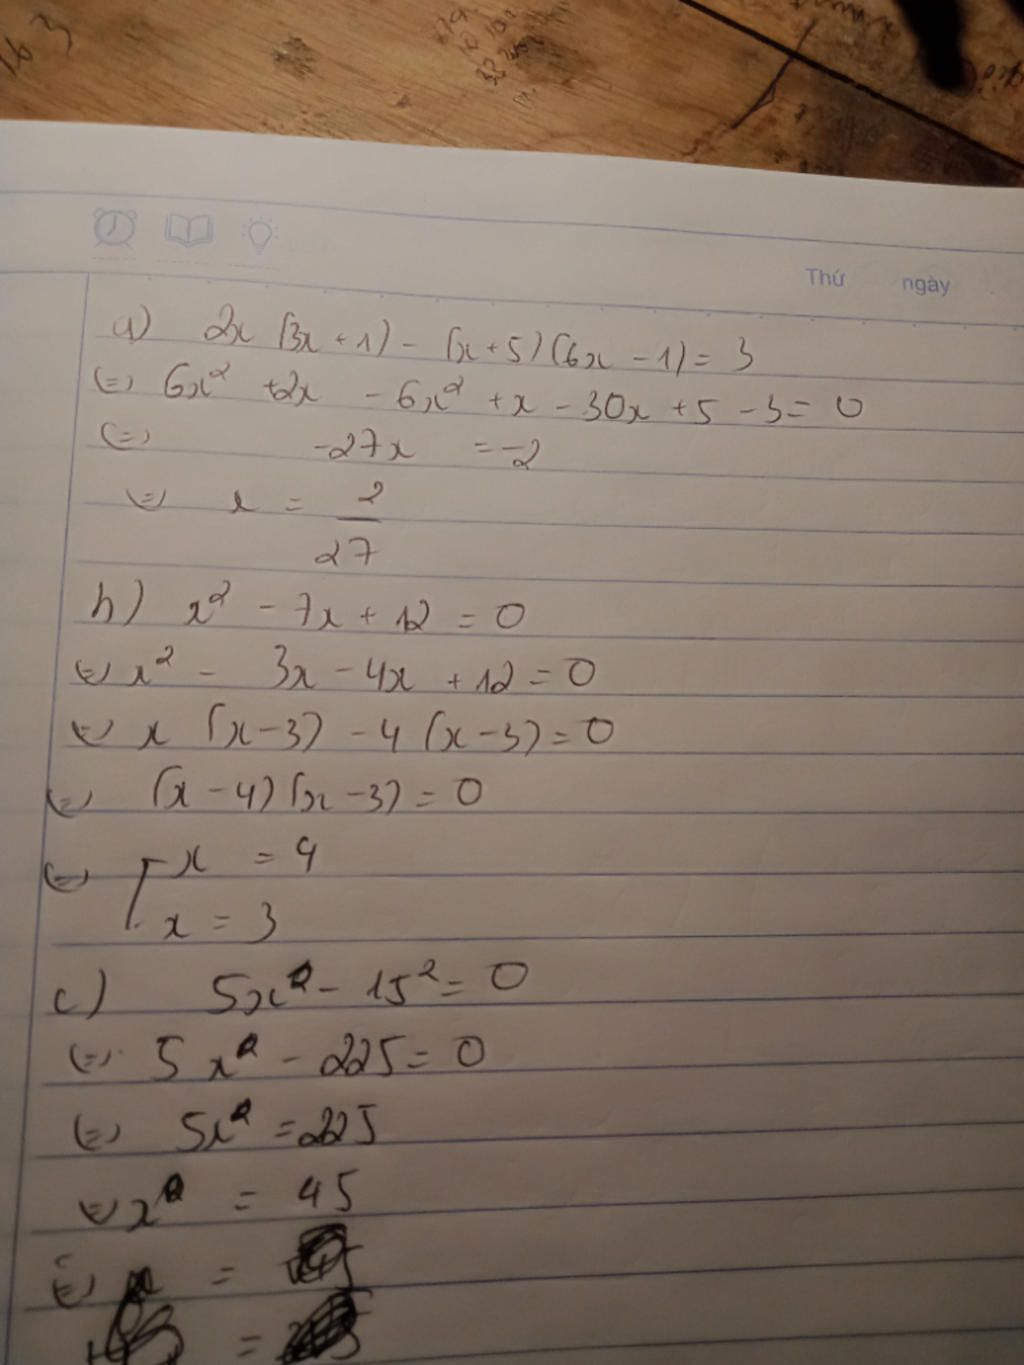 16 3
Thứ ngày
a) 2x (3x + 1) - (x + 5) (6x - 1) = 3
(=) 6x² + 2x - 6x² + x - 30x + 5 - 3 = 0
(=) -27x = -2
(=) x = 2/27
b) x² - 7x + 12 = 0
(=) x² - 3x - 4x + 12 = 0
(=) x (x - 3) - 4 (x - 3) = 0
(=) (x - 4) (x - 3) = 0
(=) [ x = 4
x = 3
c) 5x² - 15² = 0
(=) 5x² - 225 = 0
(=) 5x² = 225
(=) x² = 45
(=) x =
=